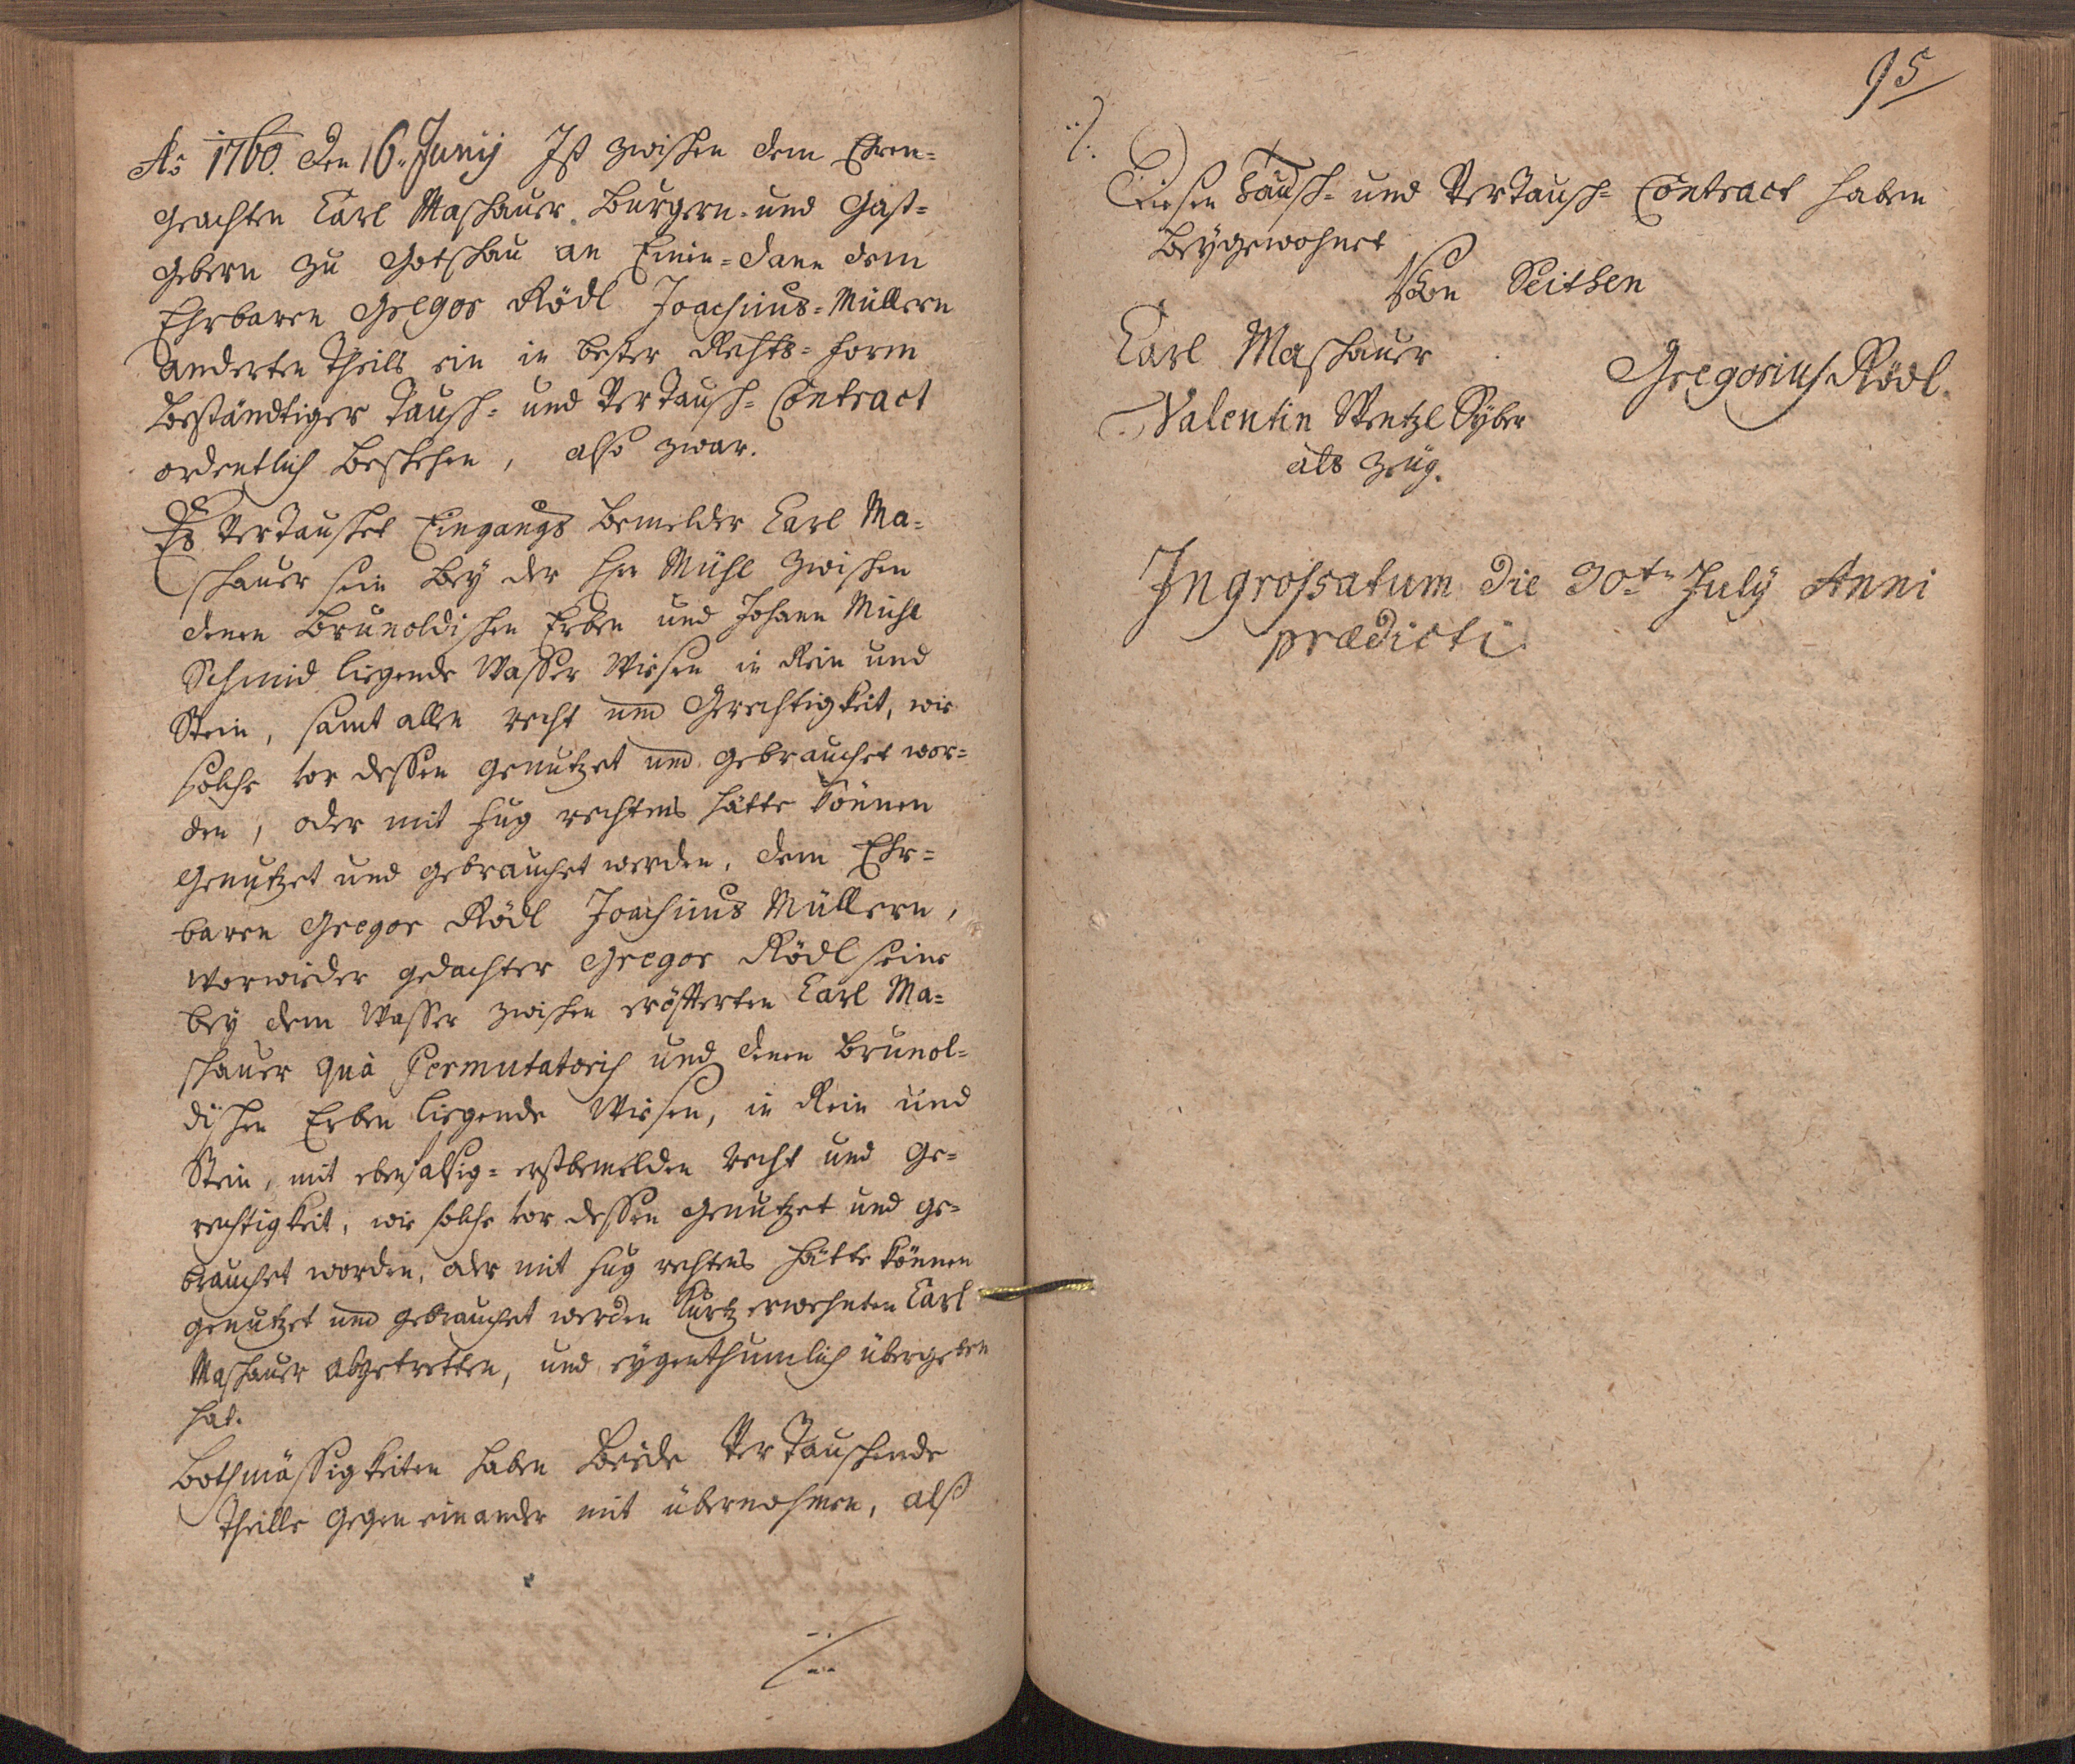 Ao 1760. den 16. Junij Ist zwischen dem Ehren=
geachten Carl Maschauer Burgern= und Gast=
gebern zu Gotschau an Einen= dann dem
Ehrbaren Gregor Rödl Joachims=Müllern
anderten Theils ein in bester Rechts= form
beständtiger Tausch= und VerTausch= Contract
ordentlich beschehen, also zwar.
Es VerTauschet Eingangs bemelder Carl Ma=
schauer sein bey der Mühl zwischen
denen Brunoldischen Erben und Johann Mühl
Schmid liegende Wasser Wiesen in Rein und
Stein, samt allen recht und Gerechtigkeit, wie
solche vor dessen genutzet und gebrauchet wor=
den, oder mit fug rechtens hätte können
genutzet und gebrauchet werden, dem Ehr=
baren Gregor Rödl Joachims Müllern,
worwieder gedachter Gregor Rödl seine
bey dem Wasser zwischen erösterten Carl Ma=
schauer quà Permutatorich und denen Brunol=
dischen Erben liegende Wiesen, in Rein und
Stein, mit ebenfalsig= erstbemelden recht und Ge=
rechtigkeit, wie solche vor dessen genutzet und ge=
brauchet worden, oder mit fug rechtens hätte können
genutzet und gebrauchet werden Kurtz erwehnten Carl
Maschauer abgetretten, und eygenthumlich übergeben
hat.
Bothmässigkeiten haben Beede VerTauschende
Theille gegen einander mit übernohmen, alß
./.
95
./.
Diesen Tausch= und VerTausch= Contract haben
beygewohnet
Von Seithen
Carl Maschauer
Gregorius Rödl.
Valentin Wentzl Syber
als Zeüg.
Ingrossatum die 30te July Anni
praedicti